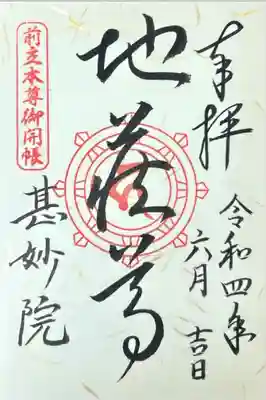 奉拝
令和四年
六月 吉日
地蔵尊
前立本尊御開帳
甚妙院